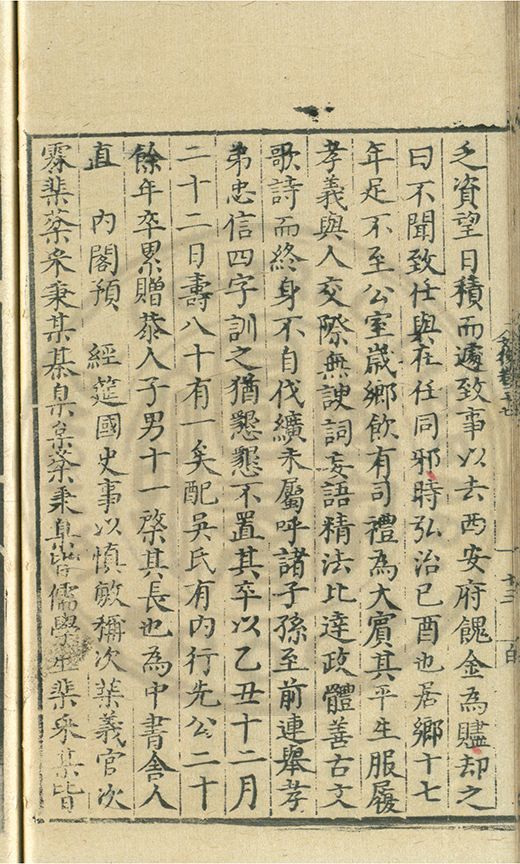 乏資望日積而遽致事以去西安府餽金為贐却之
曰不聞致任與在任同邪時弘治已酉也居鄉十七
年足不至公室歲鄉飲有司禮為大賓其平生服履
孝義與人交際無諛詞妄語精法比達政體善古文
歌詩而終身不自伐纊未屬呼諸子孫至前連舉孝
弟忠信四字訓之猶懇懇不置其卒以乙丑十二月
二十二日壽八十有一矣配吳氏有內行先公二十
餘年卒累贈恭人子男十一棨其長也為中書舍人
直 內閣預 經筵國史事以慎敏稱次葉義官次
棐 秉某 臬 秉 皆儒學生棐 某皆